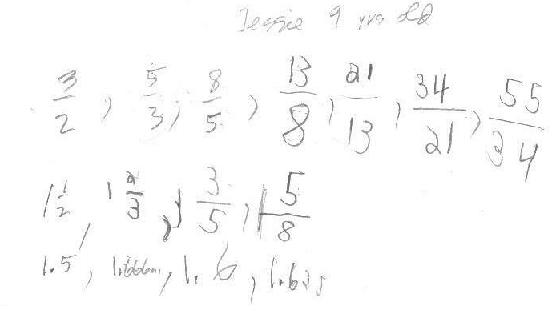 Jessie 9 yrs old
3/2, 5/3, 8/5, 13/8, 21/13, 34/21, 55/34
1 1/2, 1 2/3, 1 3/5, 1 5/8
1.5, 1.666..., 1.6, 1.625